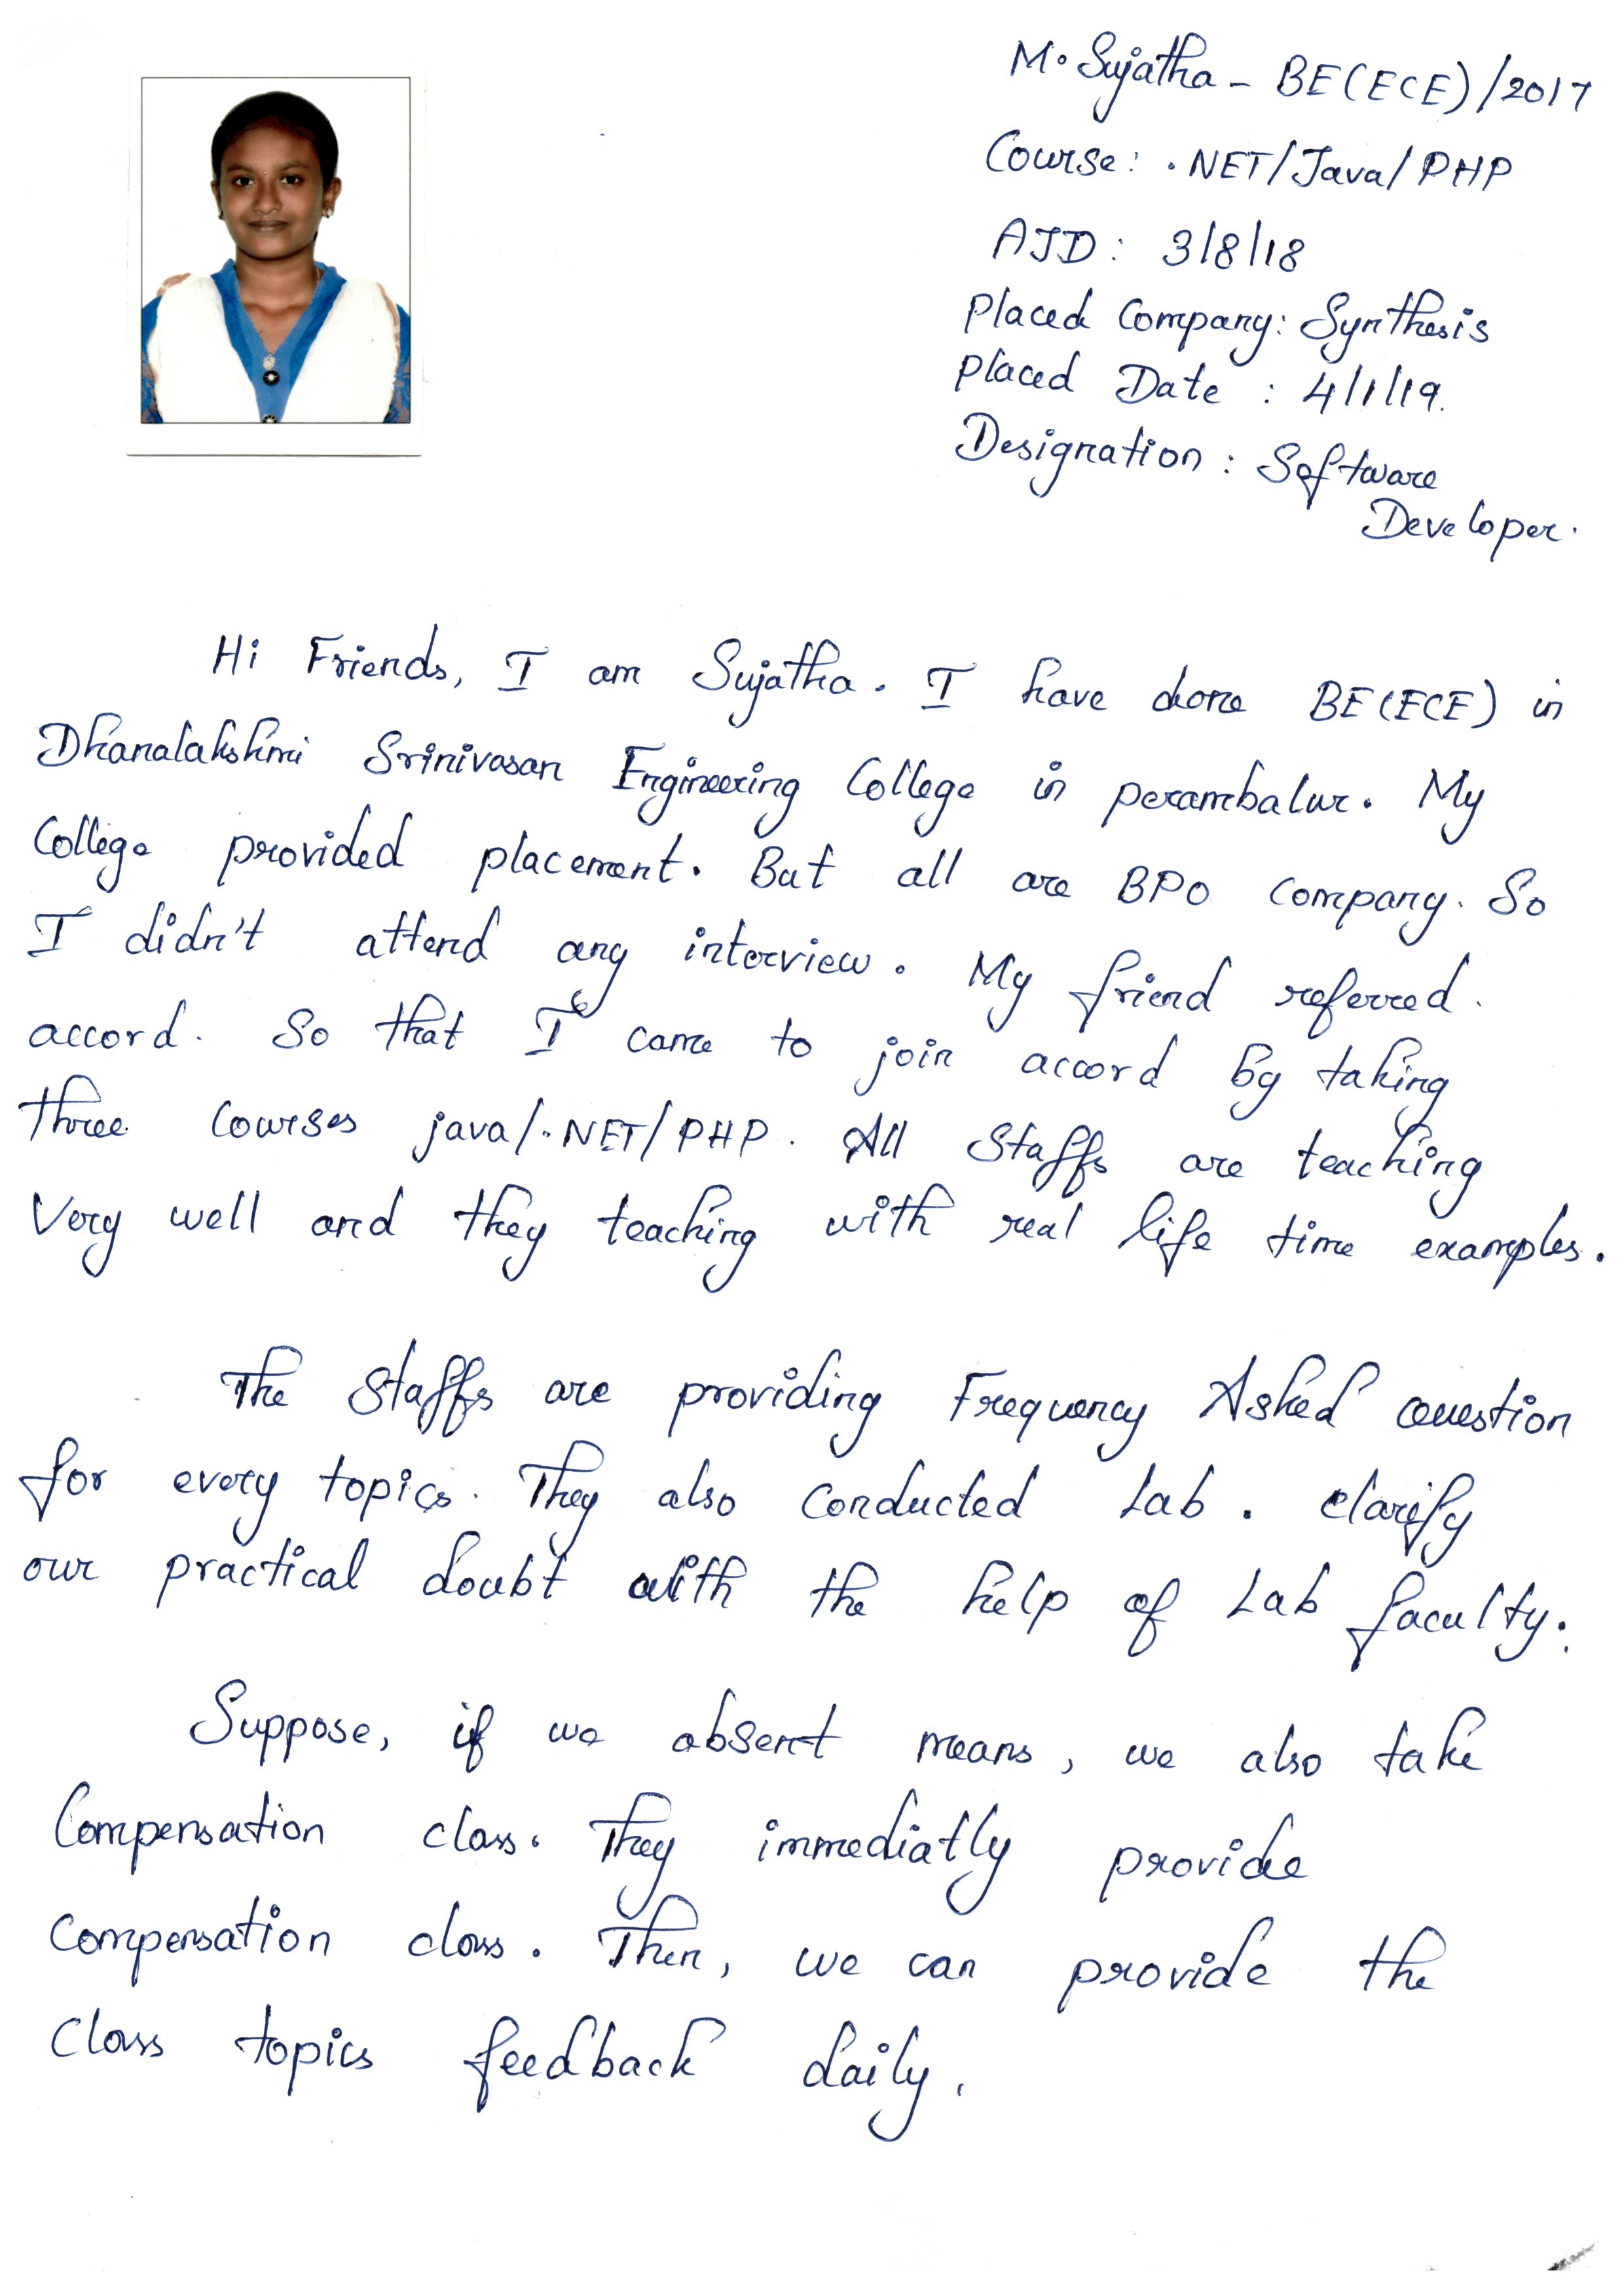 M. Sujatha - BE(ECE)/2017
Course: .NET/Java/PHP
AJD: 3/8/18
Placed Company: Synthesis
Placed Date : 4/1/19.
Designation : Software
Developer.
Hi Friends, I am Sujatha. I have done BE(ECE) in
Dhanalakshmi Srinivasan Engineering College in perambalur. My
College provided placement. But all are BPO company. So
I didn't attend any interview. My friend referred.
accord. So that I came to join accord by taking
three courses java/.NET/PHP. All Staffs are teaching
Very well and they teaching with real life time examples.
The Staffs are providing Frequency Asked question
for every topics. They also conducted Lab. clarify
our practical doubt with the help of Lab faculty.
Suppose, if we absent means, we also take
Compensation class. They immediatly provide
compensation class. Then, we can provide the
Class topics feedback daily.